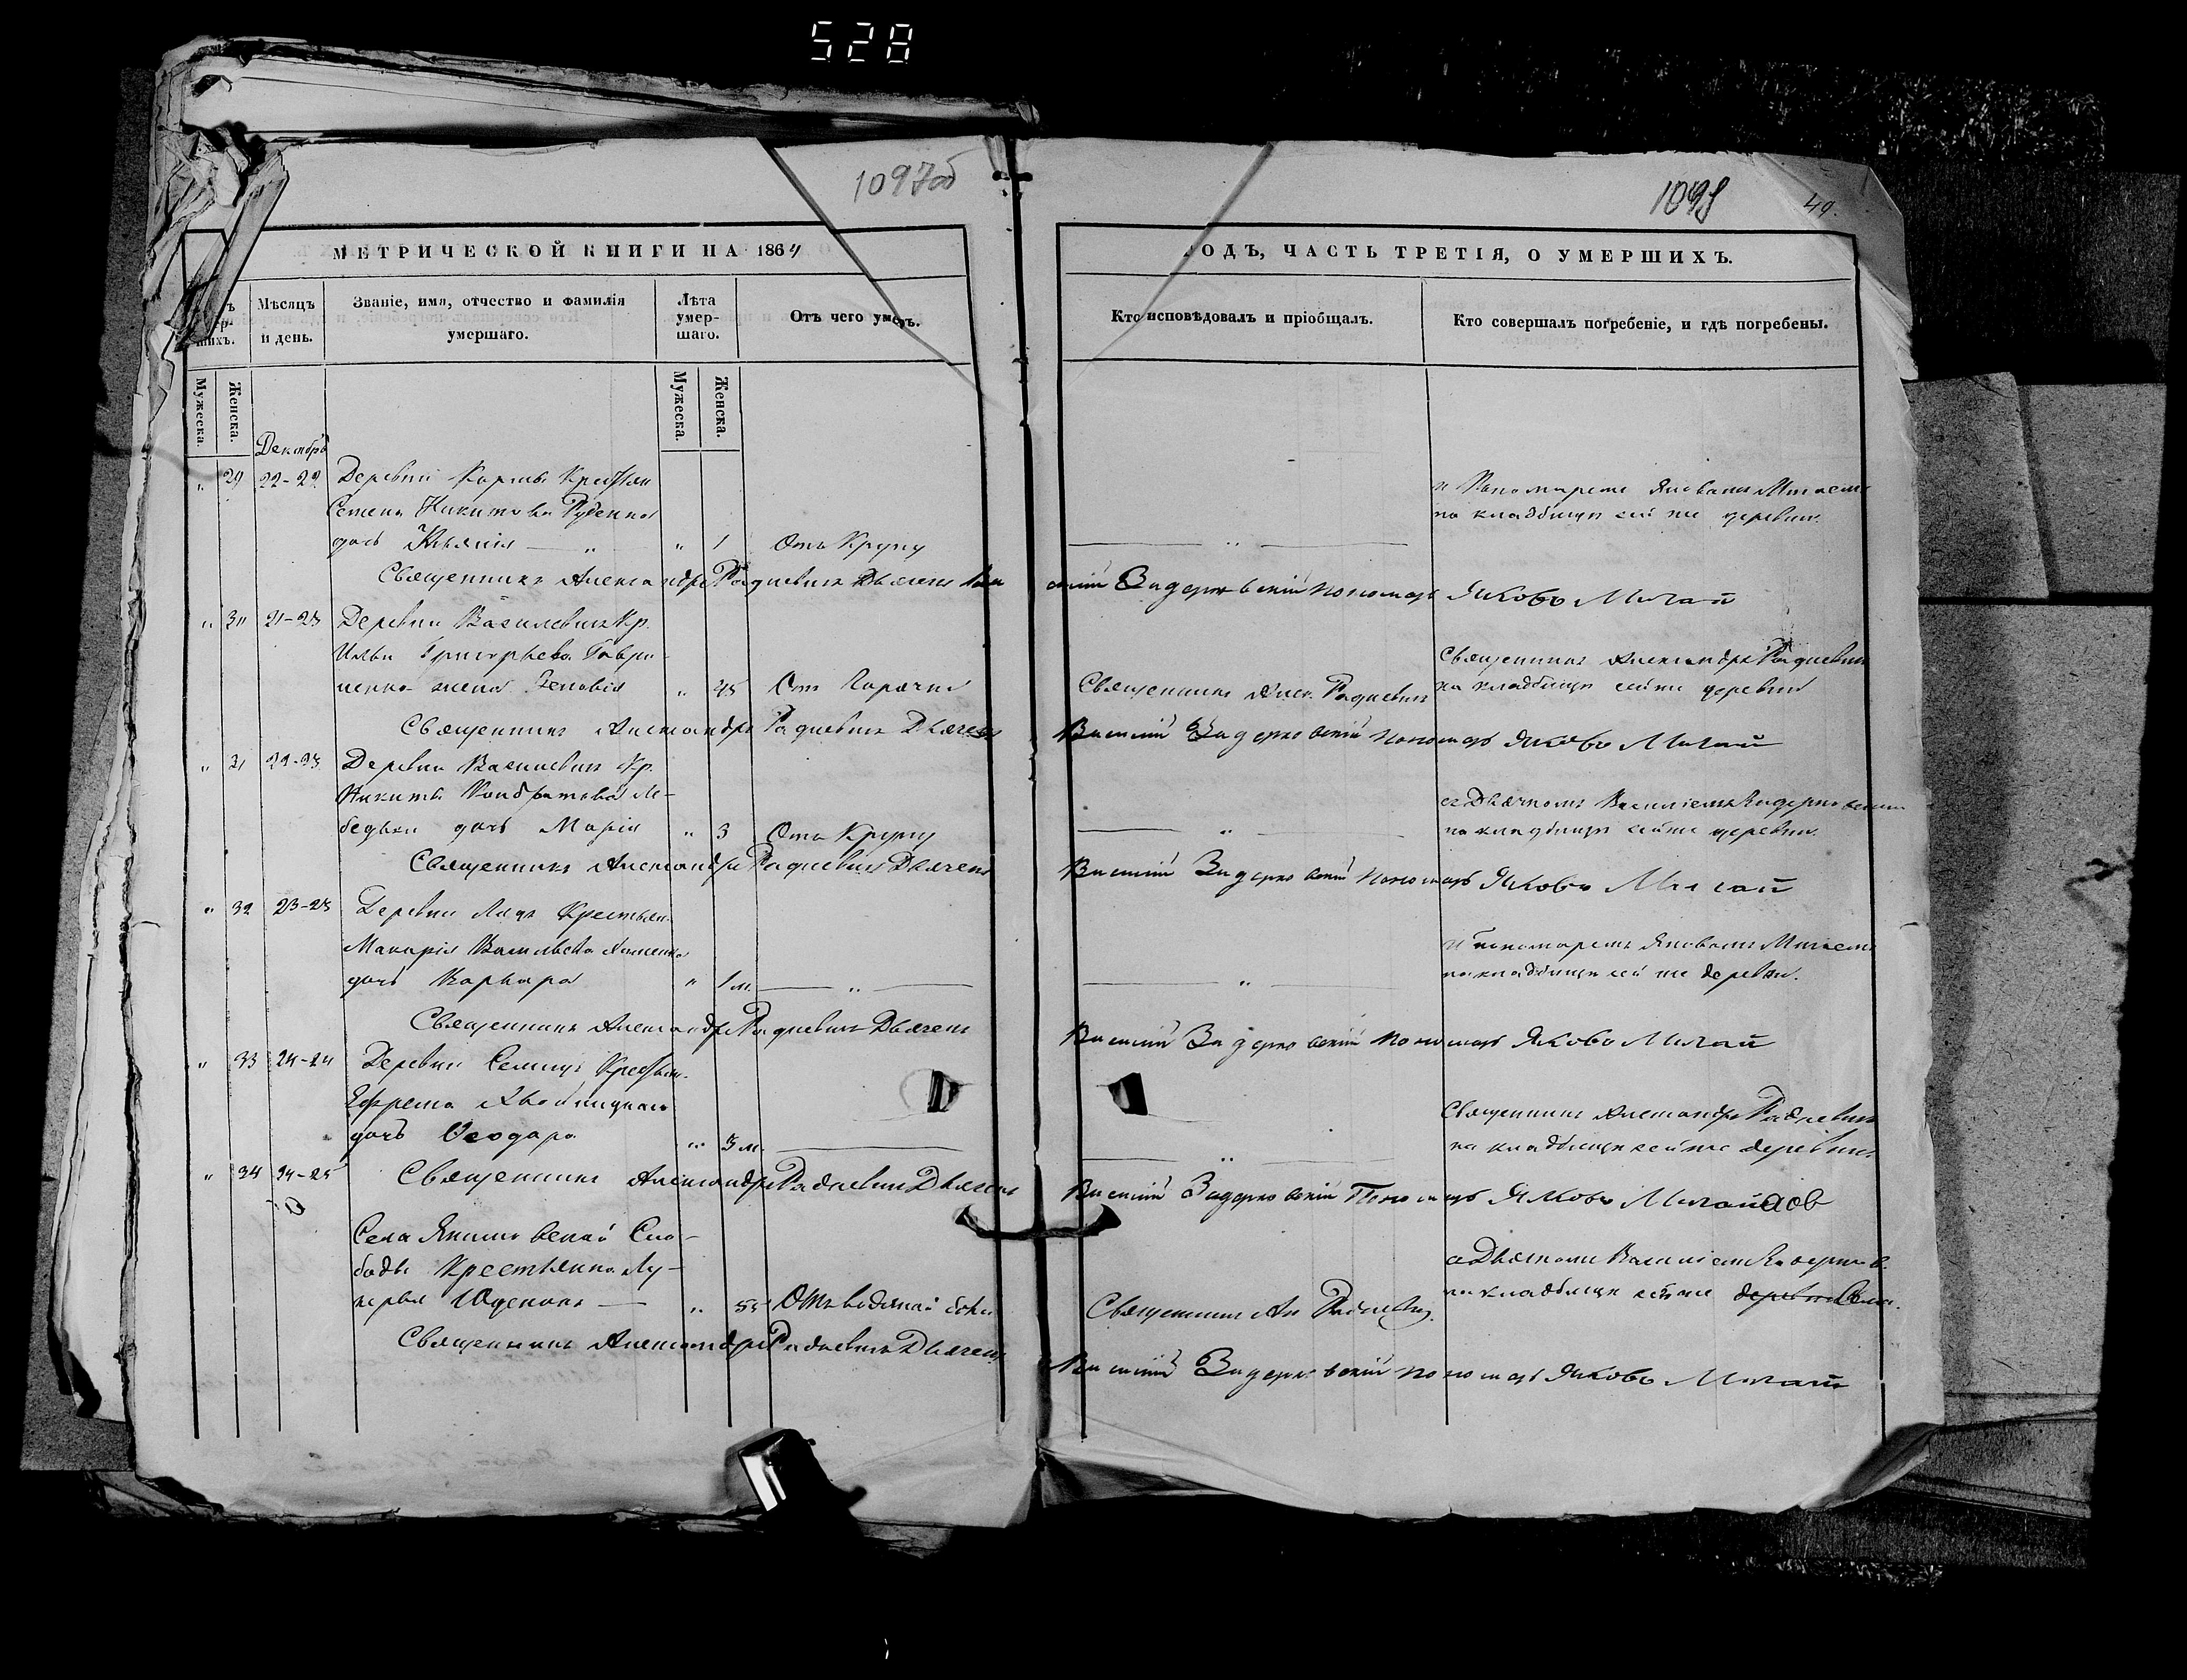 528
1097об
МЕТРИЧЕСКОЙ КНИГИ НА 1864
Мѣсяцъ и день.
Званіе, имя, отчество и фамилія умершаго.
Лѣта умер-
шаго.
Отъ чего умеръ.
Мужеска.
Женска.
Мужеска.
Женска.
Декабря
" 29 22-22 Деревни Кормы Крестьян
Семена Никитова Руденка
дочь " 1 Отъ Крупу
Священникъ Александръ Радкевичъ Дьячекъ
" 30 21-23 Деревни Василевичъ Кр.
Ильи Григорьева Гаври-
ченка жена Зеновія " 45 Отъ Горячки
Священникъ Александръ Радкевичъ Дьячекъ
" 31 22-23 Деревни Василевичъ Кр.
Никиты Кондратова Ле-
бедьки дочь Марія " 3 Отъ Крупу
Священникъ Александръ Радкевичъ Дьячекъ
" 32 23-25 Деревни Крестьян.
Макарія Васильева
дочь Варвара " 1 м. "
Священникъ Александръ Радкевичъ Дьячекъ
" 33 24-24 Деревни Крестьян.
Ефрема
дочь Ѳеодора " 3 м.
" 34 24-25 Священникъ Александръ Радкевичъ Дьячекъ
Села Якимовской Сло-
боды Крестьянка Лу-
керья Юденокъ " 55 Отъ водяной боли
Священникъ Александръ Радкевичъ Дьячекъ
1098 49.
ГОДЪ, ЧАСТЬ ТРЕТІЯ, О УМЕРШИХЪ.
Кто исповѣдовалъ и пріобщалъ.
Кто совершалъ погребеніе, и гдѣ погребены.
и Пономаремъ Яковомъ Мигаемъ
на кладбищѣ сей же деревни.
"
Задерновскій пономарь Яковъ Мигай
Священникъ Александръ Радкевичъ
Священникъ Алек. Радкевичъ на кладбищѣ сей же деревни
Василій Задерновскій пономарь Яковъ Мигай
съ Дьячкомъ Василіемъ Задерновскимъ
" на кладбищѣ сей же деревни.
Василій Задерновскій пономарь Яковъ Мигай
и пономаремъ Яковомъ Мигаемъ
" на кладбищѣ сей же деревни.
Василій Задерновскій пономарь Яковъ Мигай
Священникъ Александръ Радкевичъ
" на кладбищѣ сей же деревни.
Василій Задерновскій Пономарь Яковъ Мигай
съ Дьячкомъ Василіемъ
Священникъ Ал Радкевичъ. на кладбищѣ сей же деревни Села.
Василій Задерновскій пономарь Яковъ Мигай